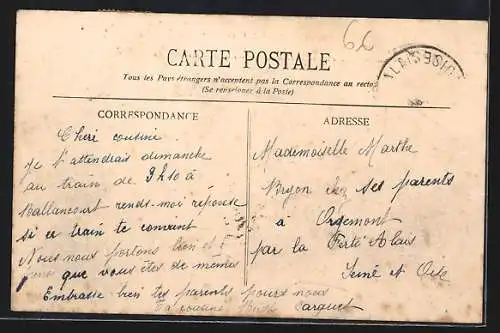 66
CARTE POSTALE
Tous les Pays étrangers n'acceptent pas la Correspondance au recto
(Se renseigner à la Poste)
CORRESPONDANCE
Cheri cousine
Je t'attendrais dimanche
au train de 9h10 à
Ballancourt rends-moi réponse
si ce train te convient
Nous nous portons bien et j'
que vous êtes de mêmes
Embrasse bien tes parents pour nous
Ta cousine
ADRESSE
Mademoiselle Marthe
Bryon chez ses parents
à Orgemont
par la Ferté Alais
Seine et Oise